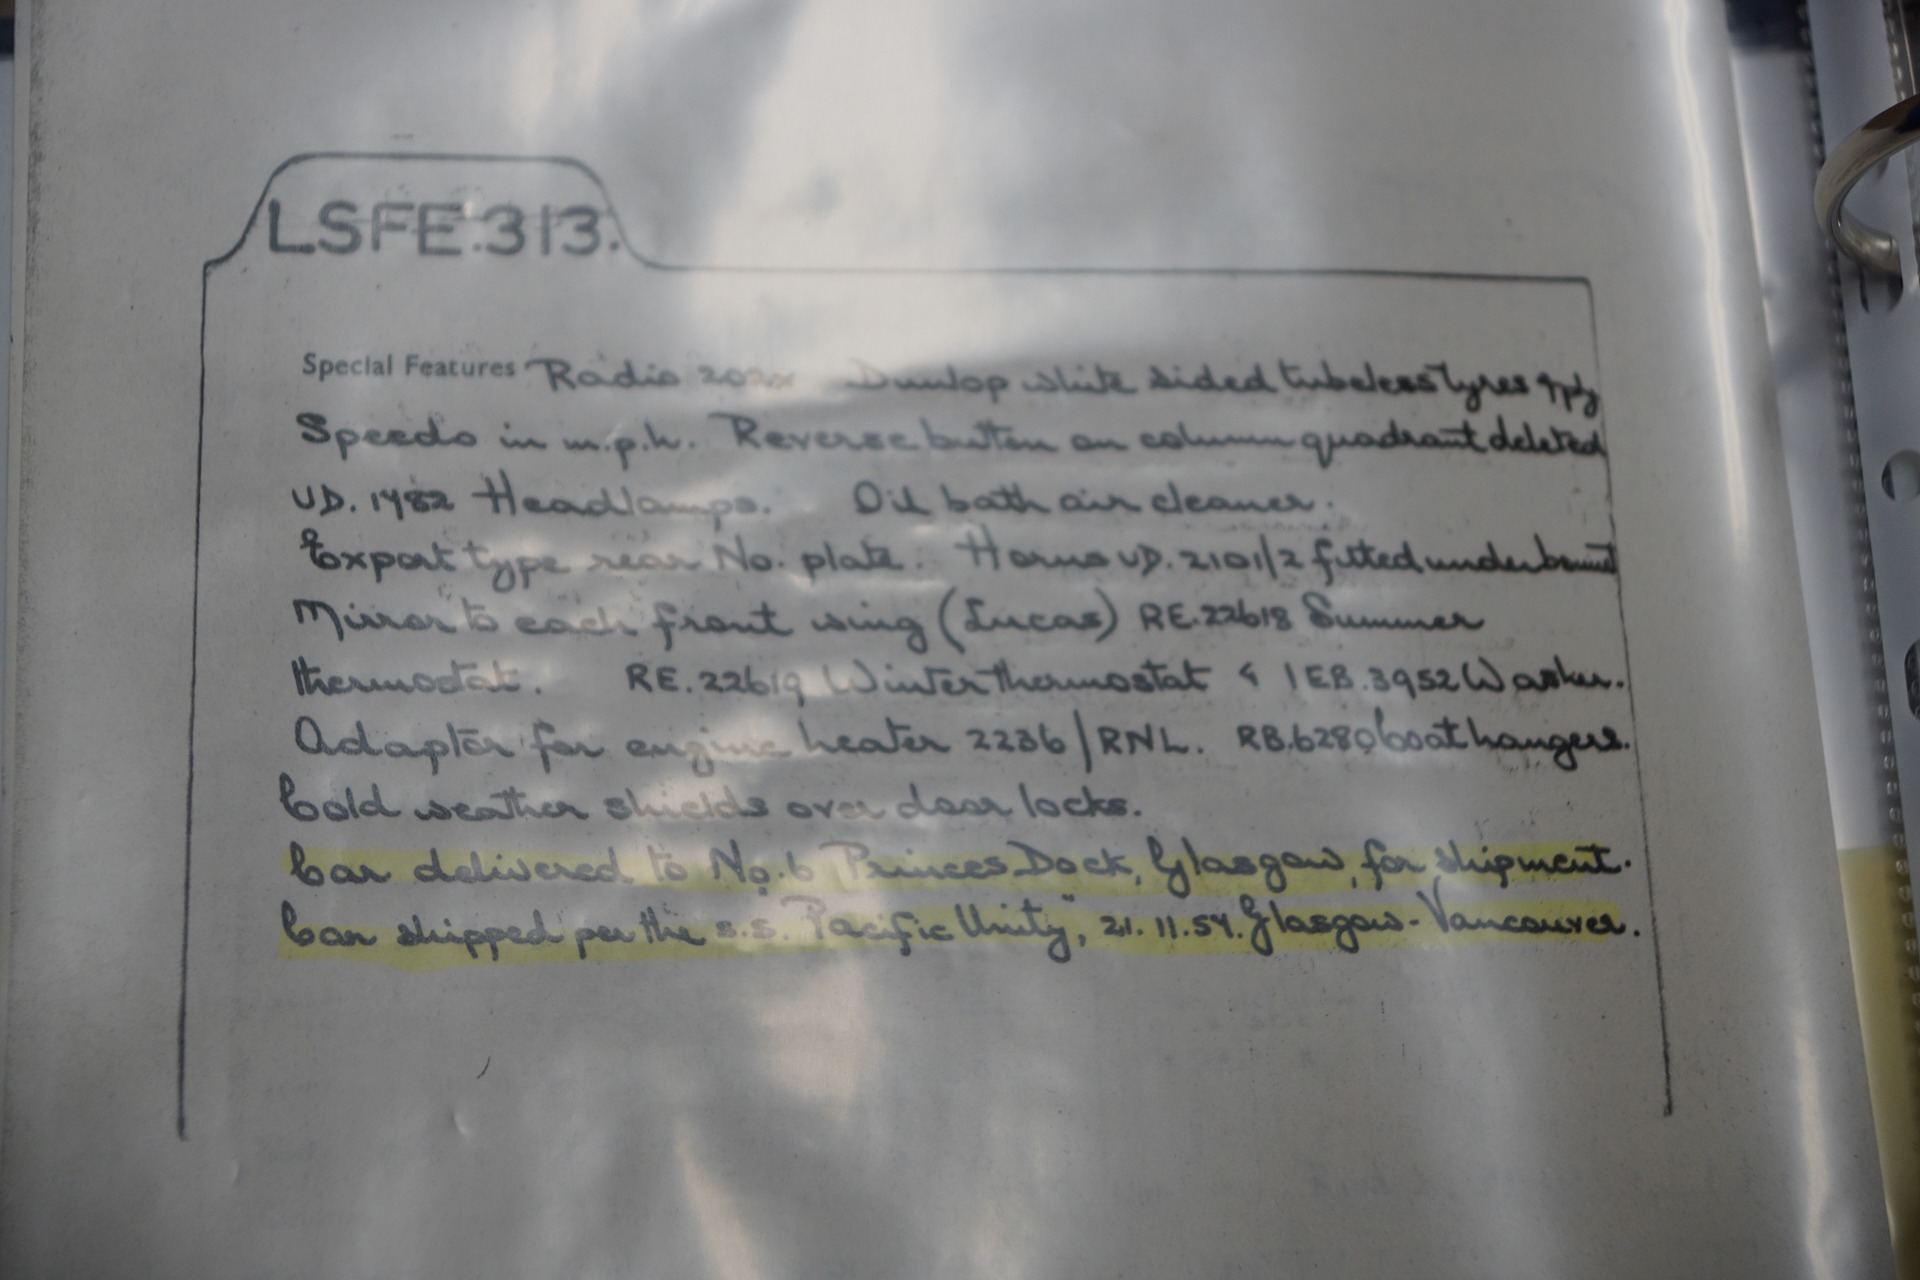 LSFE.313.
Special Features Radio 202x Dunlop white sided tubeless tyres 4ply
Speedo in m.p.h. Reverse button on column quadrant deleted
UD. 1482 Headlamps. Oil bath air cleaner.
Export type rear No. plate. Horns UD. 2101/2 fitted under
Mirror to each front wing (Lucas) RE.22618 Summer
thermostat. RE.22619 Winter thermostat & 1 EB.3952 Washer.
Adaptor for engine heater 2236/RNL. RB.6280 Coat hangers.
Cold weather shields over door locks.
Car delivered to No.6 Princes Dock, Glasgow, for shipment.
Car shipped per the s.s. "Pacific Unity", 21.11.54. Glasgow - Vancouver.